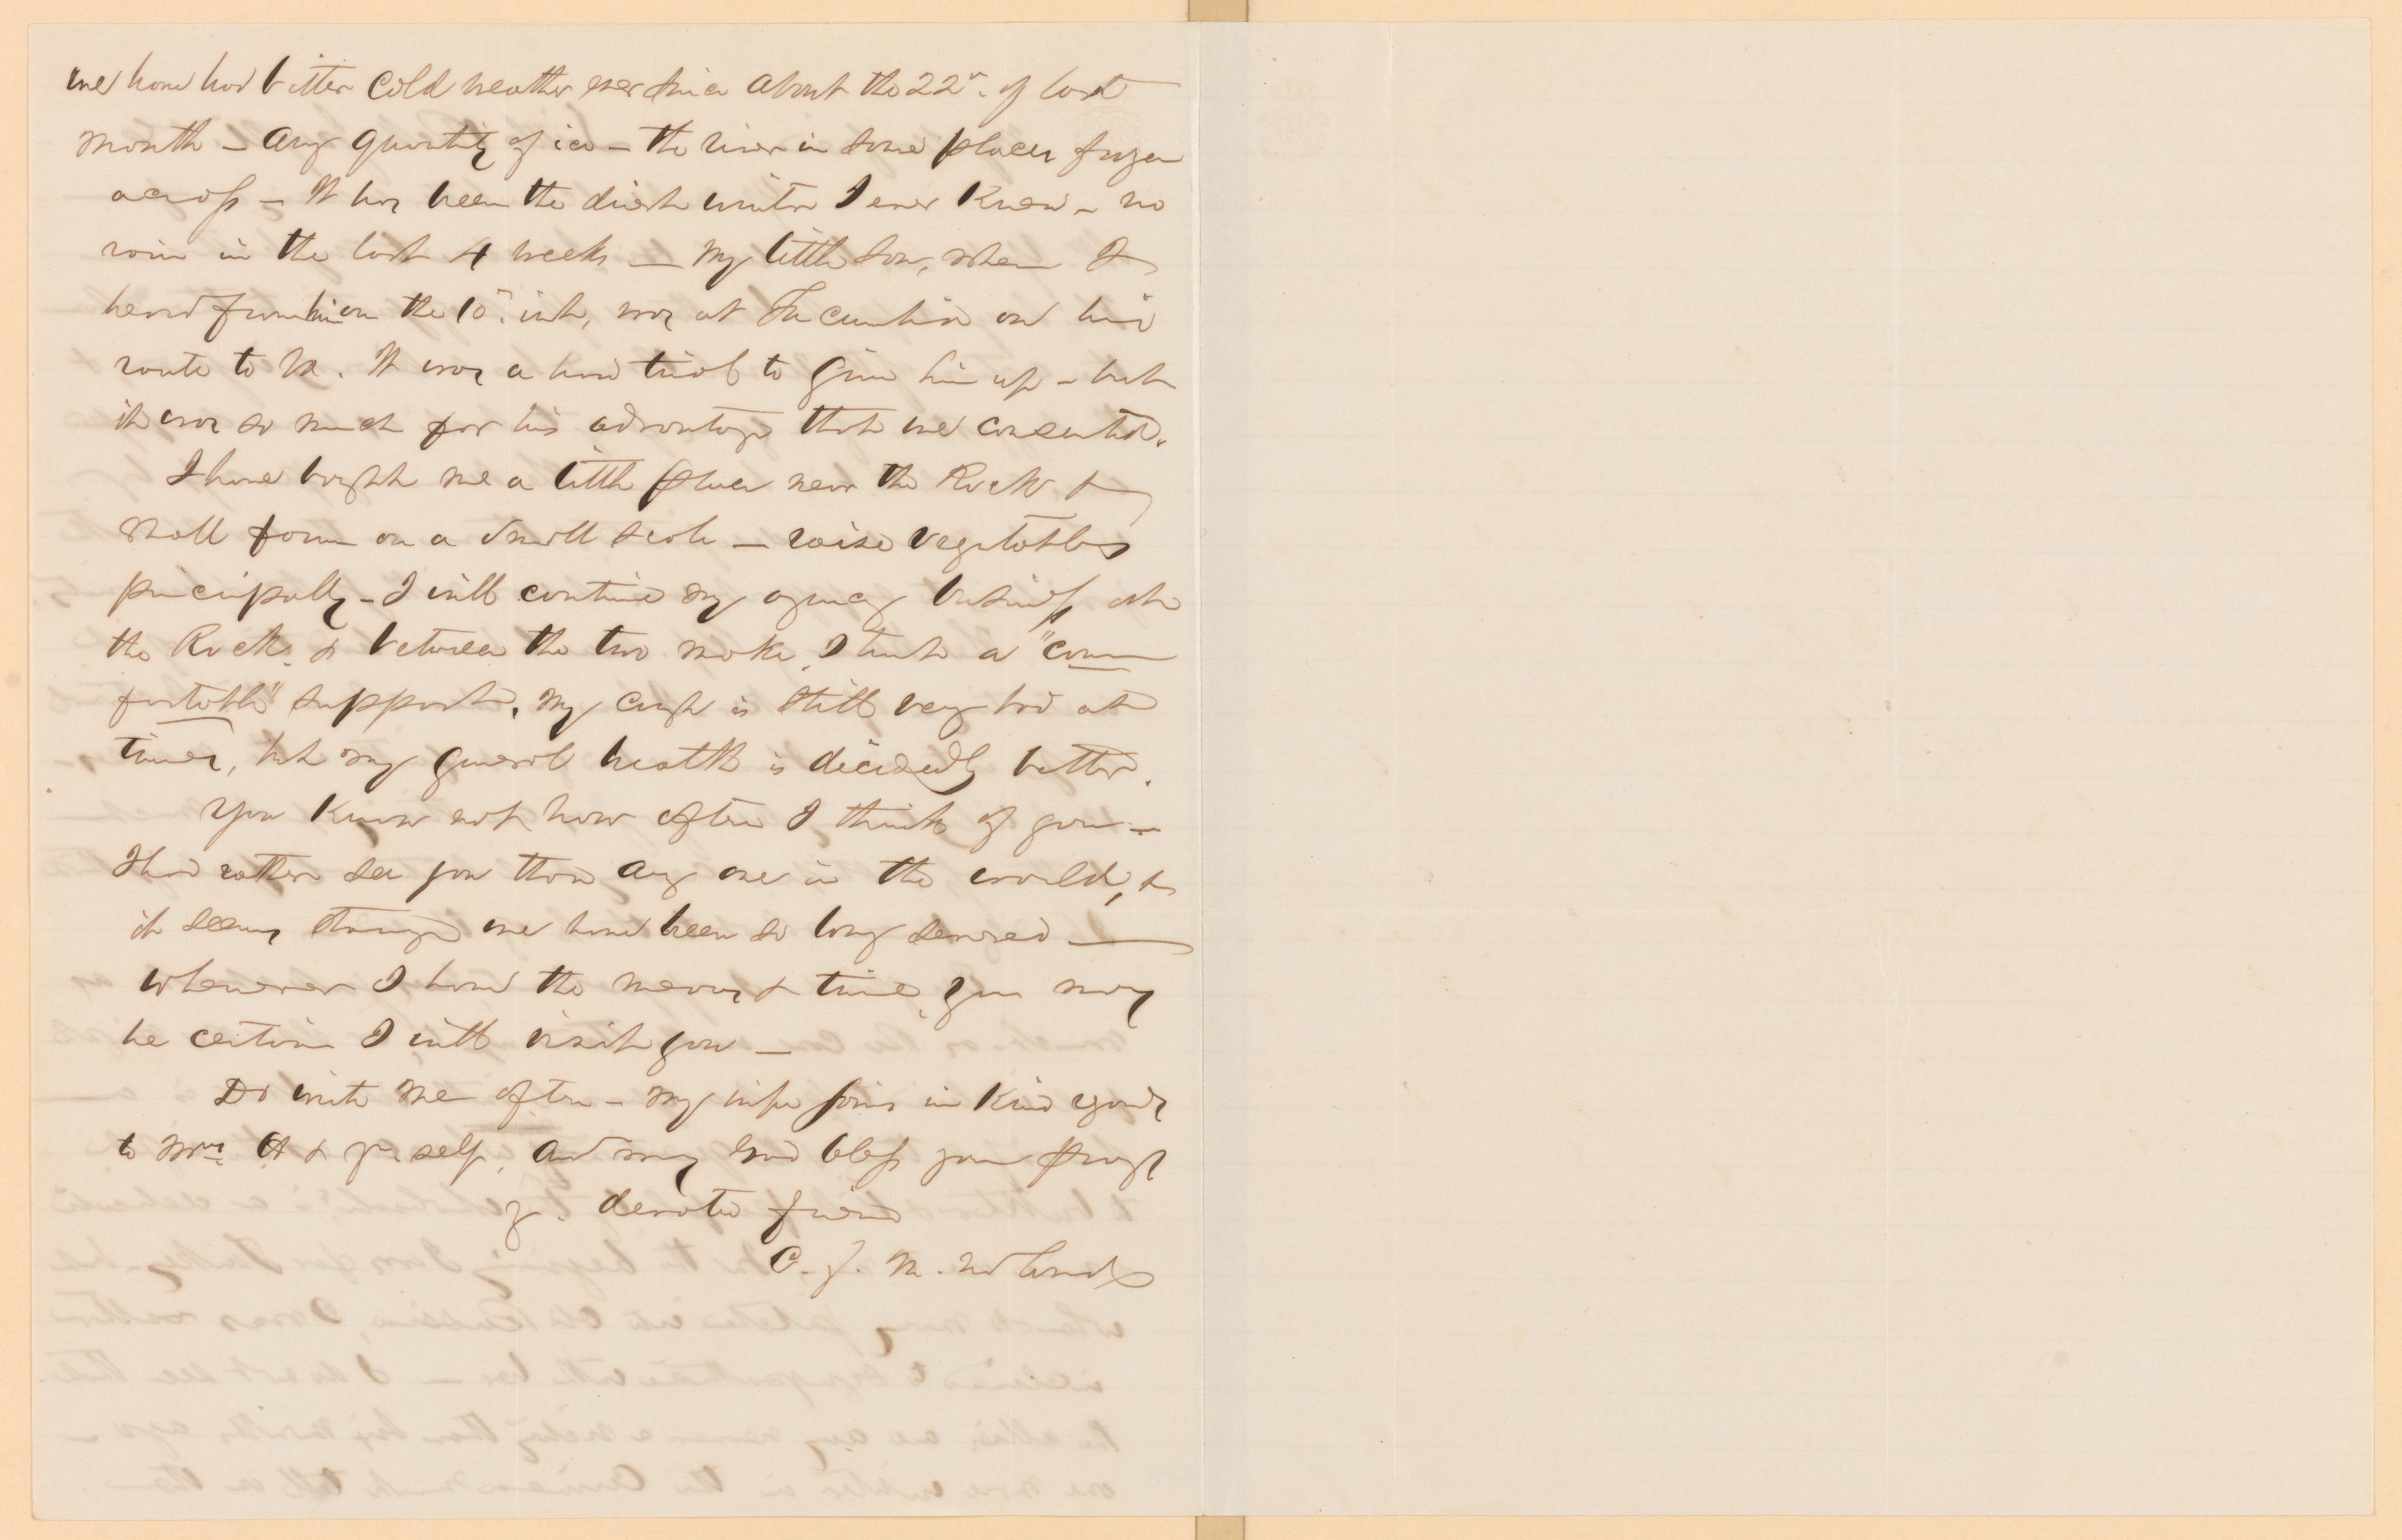 we have had bitter cold weather ever since about the 22d. of last
month – any quantity of ice – the river in some places frozen
across – It has been the driest winter I ever knew – no
rain in the last 4 weeks – My little son, when I
heard from him on the 10th. inst, was at Tuscumbia on his
route to Va. It was a hard trial to give him up – but
it was so much for his advantage that we consented.
I have bought me a little place near the Rock &
shall farm on a small scale – raise vegetables
principally – I will continue my agency business at
the Rock. & between the two make, I trust a "com
fortable" support. My cough is still very bad at
times, but my general health is decidedly better.
You know not how often I think of you –
I had rather see you than any one in the world, &
it seems strange we have been so long severed —
Whenever I have the means & time, you may
be certain I will visit you –
Do write me often – My wife joins in kind regards
to Mrs. A & yr. self, and may God bless you prays
yr. devoted friend
C. F. M.